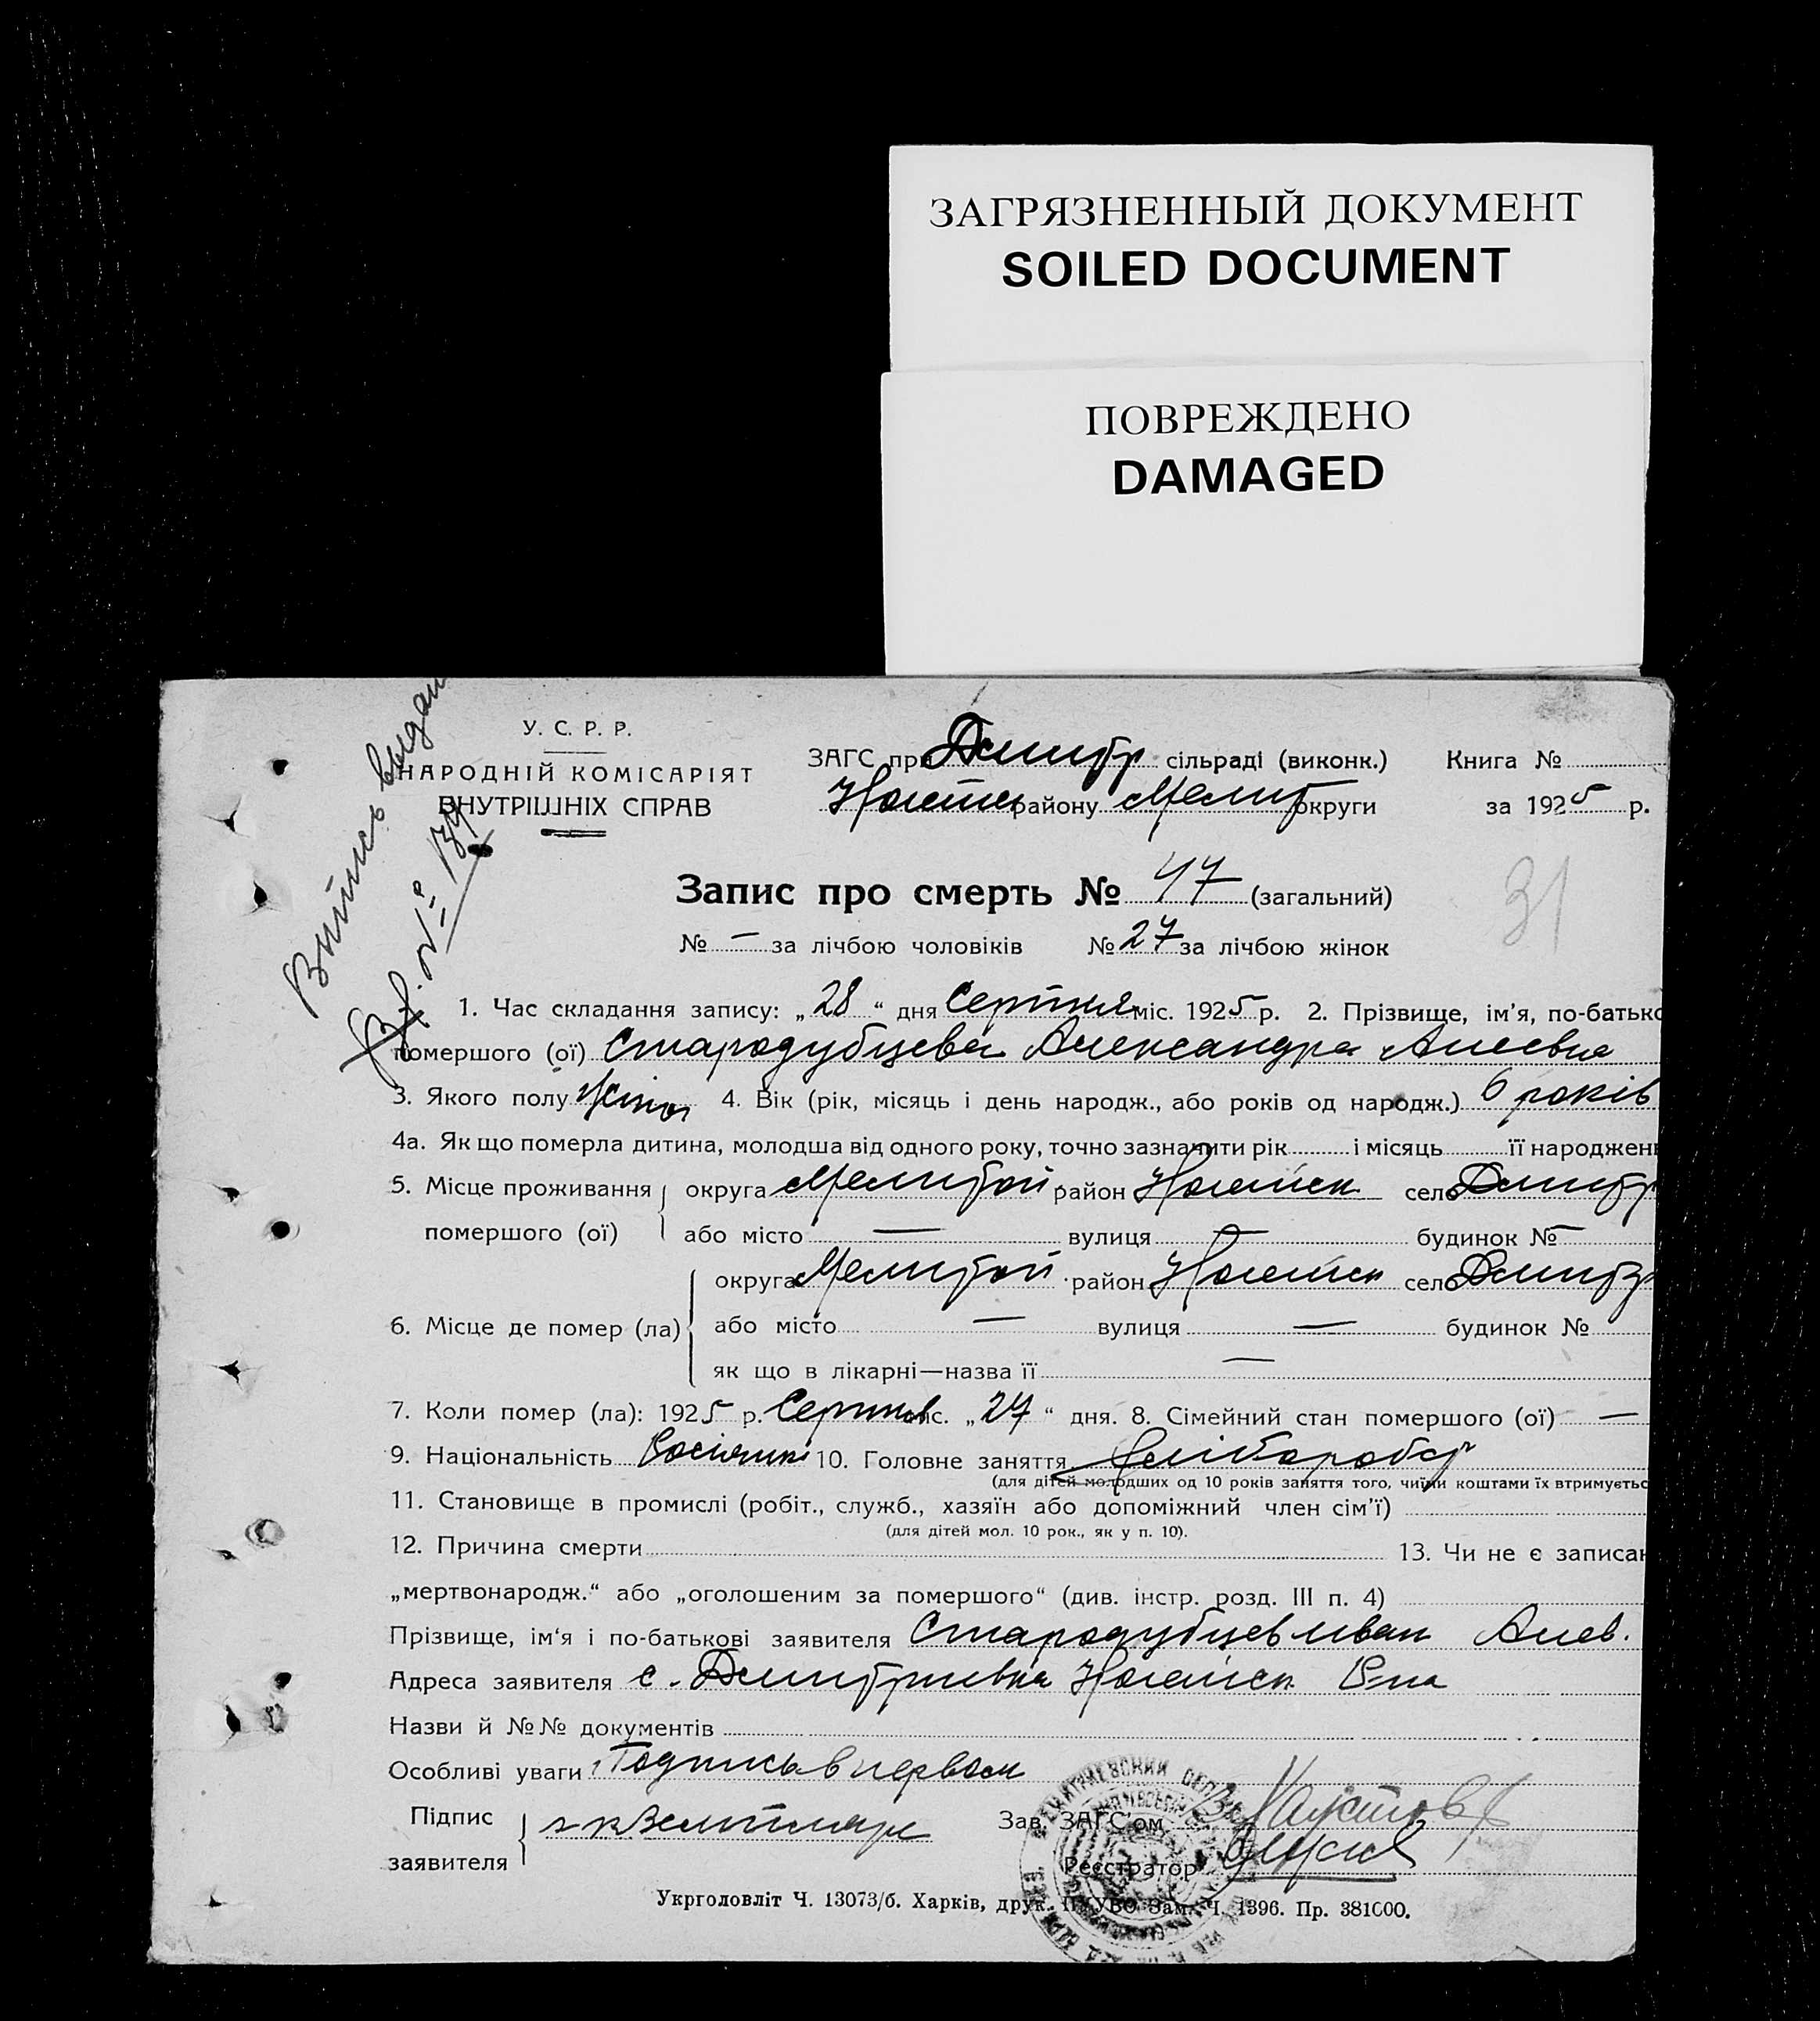 ЗАГРЯЗНЕННЫЙ ДОКУМЕНТ
SOILED DOCUMENT
ПОВРЕЖДЕНО
DAMAGED
Випись выдан
№ 139
У. С. Р. Р.
НАРОДНІЙ КОМІСАРІЯТ
ВНУТРІШНІХ СПРАВ
ЗАГС при Дмитр сільраді (виконк.) Книга №
району Мелит округи за 1925 р.
Запис про смерть № 47 (загальний)
31
№ — за лічбою чоловіків № 27 за лічбою жінок
1. Час складання запису: „28“ дня Серпня міс. 1925 р. 2. Прізвище, ім'я, по-батько
помершого (ої) Стародубцева Александра
3. Якого полу 4. Вік (рік, місяць і день народж., або років од народж.) 6 років
4а. Як що померла дитина, молодша від одного року, точно зазначити рік і місяць її народжен
5. Місце проживання округа Мелитоп район Ногайск село Дмитр
помершого (ої) або місто — вулиця — будинок № —
округа Мелитоп район Ногайск село Дмитр
6. Місце де помер (ла) або місто — вулиця — будинок №
як що в лікарні—назва її —
7. Коли помер (ла): 1925 р. Серпня міс. „27“ дня. 8. Сімейний стан помершого (ої) —
9. Національність 10. Головне заняття Хлібороб
(для дітей молодших од 10 років заняття того, чиїми коштами їх втримуєтьс
11. Становище в промислі (робіт., служб., хазяїн або допоміжний член сім'ї)
(для дітей мол. 10 рок., як у п. 10).
12. Причина смерти 13. Чи не є записан
„мертвонародж.“ або „оголошеним за помершого“ (див. інстр. розд. III п. 4)
Прізвище, ім'я і по-батькові заявителя Стародубцев Иван
Адреса заявителя с. Дмитривка Ногайск
Назви й №№ документів
Особливі уваги Подпись в первом
Підпис
заявителя
Зав. ЗАГС'ом
Реєстратор
Укрголовліт Ч. 13073/б. Харків, друк. Зам. Ч. 1396. Пр. 381000.